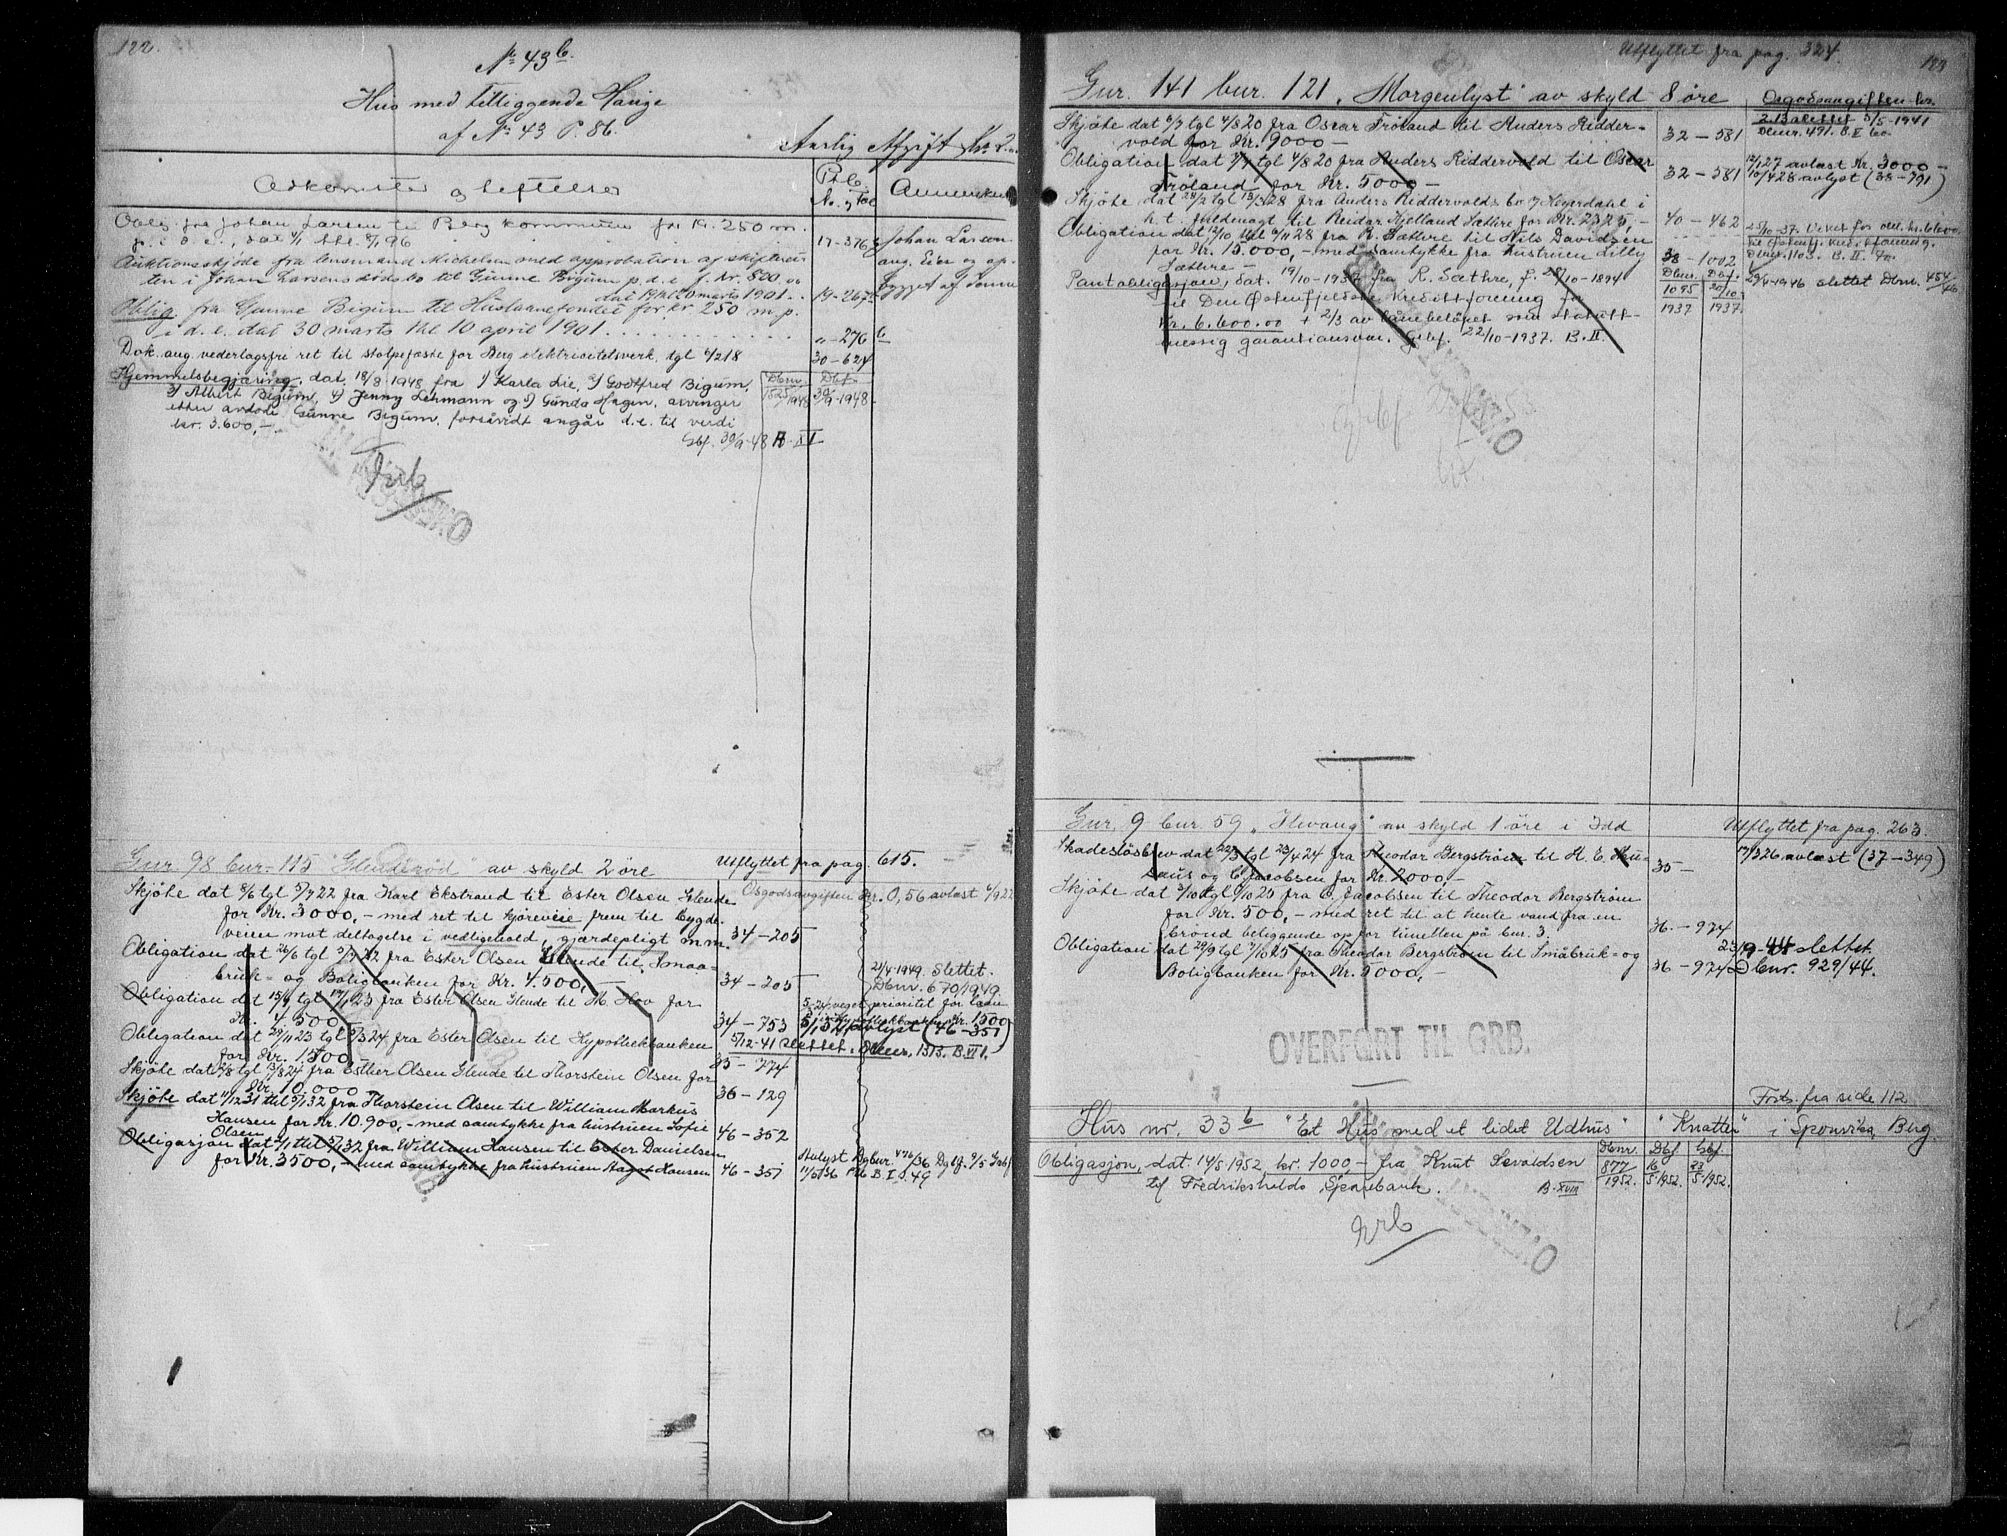 122.
No 43 b.
Hus med tilliggende Hauge
af No 43 P. 86.
Aarlig Afgift Kr. 2.
Adkomster og Heftelser
Ptb. No. og Fol
Anmerkn
Oblig. fra Johan Larsen til Berg kommune for Kr. 250 m.
p. i d. e., dat 4/1 thl. 8/1 96
17-376 b
Johan Larsen
Auktionsskjøde fra lensmand Michelsen med approbation af skifteret-
ang. Eier og op-
ten i Johan Larsens dødsbo til Gunne Bigum p.d.e. f. Kr. 800.00
bygget af denne
dat 19 thl 20 marts 1901.
19-267
Oblig. fra Gunne Bigum til Huslaanefondet for kr 250 m.p.
i d. e. dat 30 marts thl 10 april 1901
" - 276 b
Dok. ang. vederlagsfri ret til stolpefæste for Berg elektricitetsverk, tgl 4/2 18
30-624
Hjemmelsbegjæring, dat. 18/8 1948 fra 1) Karla Lie, 2) Godtfred Bigum,
Dbnr. Dbf.
3) Albert Bigum, 4) Jenny Lehmann og 5) Gunda Hagen, arvinger
1825/1948 30/9-1948
etter avdøde Gunne Bigum, forsåvidt angår d.e. til verdi
kr. 3.600,-.
Gbf. 30/9-48 B-XI
Grb
Gnr 98 bnr. 115 "Glenderød" av skyld 2 øre
Utflyttet fra pag. 615.
Skjøte dat 8/6 tgl 5/7 22 fra Karl Ekstrand til Ester Olsen Glende
Osgodsavgiften Kr. 0,56 avløst 4/9 22
for Kr. 3000,- med ret til kjørevei frem til bygde-
veien mot deltagelse i vedligehold, gjærdepligt m.m.
34-205
Obligation dat 26/6 tgl 5/7 22 fra Ester Olsen Glende til Smaa-
bruk- og Boligbanken for Kr. 4.500,-
34-205
21/4-1949. Slettet.
Dbnr. 670/1949.
Obligation dat 15/1 tgl 17/1 23 fra Ester Olsen Glende til M. Hov for
Kr. 4 500 -
34-753
5/1 32 avlyst (46-351)
Obligation dat 29/11 23 tgl 5/3 24 fra Ester Olsen til Hypothekbanken
for Kr. 1500 -
35-774
5/12-41 slettet. Dbnr. 1313. B. VI 1.
Skjøte dat 2/8 tgl 12/8 24 fra Esther Olsen Glende til Thorstein Olsen for
Kr. 10.000
36-129
Skjøte dat 11/12 31 thl 5/1 32 fra Thorstein Olsen til William Markus
Hansen for Kr. 10.900,- med samtykke fra hustruen Sofie
Olsen
46-352
Obligasjon dat 2/1 thl 5/1 32 fra William Hansen til Ester Danielsen
for Kr. 3500,- med samtykke fra hustruen Aagot Hansen
46-351
Avlyst Dgbnr. 476/36 Dgbf. 9/5
11/5 36 Ptb B. I S. 49
Utflyttet fra pag. 324.
123
Gnr. 141 bnr. 121 „Morgenlyst" av skyld 8 øre
Osgodsavgiften kr.
2.13 slettet 3/5-1941
Dbnr. 491. B. V 60
Skjøte dat 6/7 tgl 4/8 20 fra Oscar Frøland til Anders Ridder-
vold for Kr. 9000 -
32-581
Obligation dat 3/7 tgl 4/8 20 fra Anders Riddervold til Oscar
Frøland for Kr. 5000 -
32-581
12/1 27 avløst Kr. 3000 -
10/4 28 avlyst (38-791)
Skjøte dat 24/2 tgl 13/3 28 fra Anders Riddervolds bo v/ Heyerdahl i
h.t. fuldmagt til Reidar Kjelland Sæthre for Kr. 2325,-
40-462
Obligation dat 12/10 thl 6/11 28 fra R. Sæthre til Nils Davidsen
for Kr. 15.000,- med samtykke fra hustruen Lilly
Sæthre -
38-1002
Dbnr. 1103. B. II. 40.
Pantobligasjon, dat. 19/10-1937 fra R. Sæthre, f. 28/10-1894
Dbnr. Dbf.
1095/1937 20/10 1937.
29/4-1946 slettet Dbnr. 454/46
til Den Østenfjeldske Kredittforening for
Kr. 6.600.00 + 2/3 av lånebeløpet som statutt-
messig garantiansvar. Gjbf. 22/10-1937. B. II.
Gnr. 9 bnr. 59 „Ilevang" av skyld 1 øre i Idd
Utflyttet fra pag. 263.
Skadesløsbrev dat 22/3 tgl 23/4 24 fra Theodor Bergstrøm til H. E. Hu-
laus og C. Jacobsen for Kr. 2000,-
35-
17/3 26 avløst (37-349)
Skjøte dat 3/10 tgl 7/10 25 fra C. Jacobsen til Theodor Bergstrøm
for Kr. 500,- med ret til at hente vand fra en
brønd beliggende op for tunellen på bnr. 3.
36.-974
Obligation dat 29/9 tgl 7/10 25 fra Theodor Bergstrøm til Småbruk- og
Boligbanken for Kr. 3000,-
36-974
23/9-44 slettet
Dbnr. 929/44.
OVERFØRT TIL GRB.
Forts. fra side 112
Hus nr. 33 b "Et Hus" med et lidet Udhus" "Knatten" i Sponvika, Berg.
Dbnr. Dbf Gbf
Obligasjon, dat. 14/5 1952, kr. 1000,- fra Knut Sevaldsen
877/1952. 16/5-1952. 23/5-1952.
til Fredrikshalds Sparebank.
B. XVIII
Grb